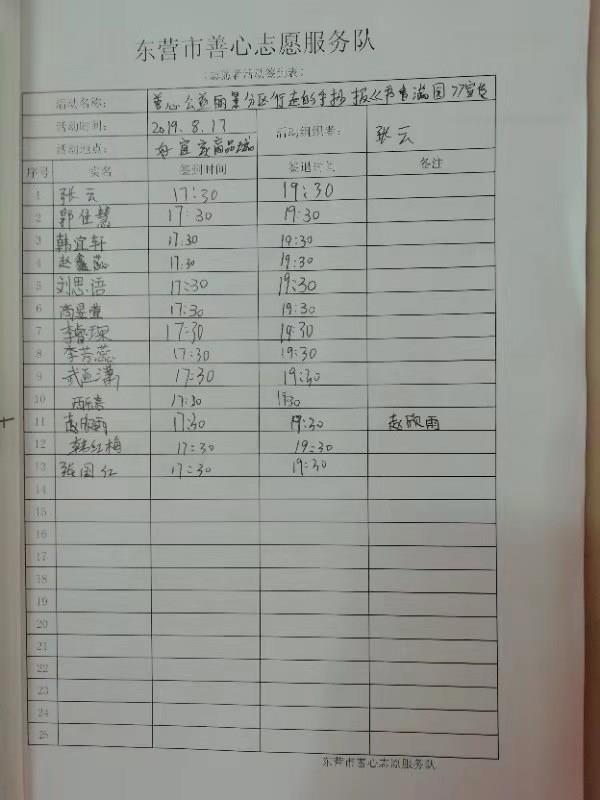 东营市善心志愿服务队
（志愿者活动签到表）
活动名称： 善心公益丽景分区行走的手抄报《书香满园》宣传
活动时间： 2019.8.17 活动组织者： 张云
活动地点： 好宜家商品城
序号 实名 签到时间 签退时间 备注
1 张云 17:30 19:30
2 郭佳慧 17:30 19:30
3 韩宜轩 17.30 19:30
4 赵鑫蕊 17:30 19:30
5 刘思语 17:30 19:30
6 尚昱萱 17:30 19:30
7 李睿琛 17:30 19:30
8 李芳蕊 17:30 19:30
9 武 17:30 19:30
10 17:30 19:30
11 赵欣雨 17:30 19:30 赵欣雨
12 韩红梅 17:30 19:30
13 张国红 17:30 19:30
14
15
16
17
18
19
20
21
22
23
24
25
东营市善心志愿服务队